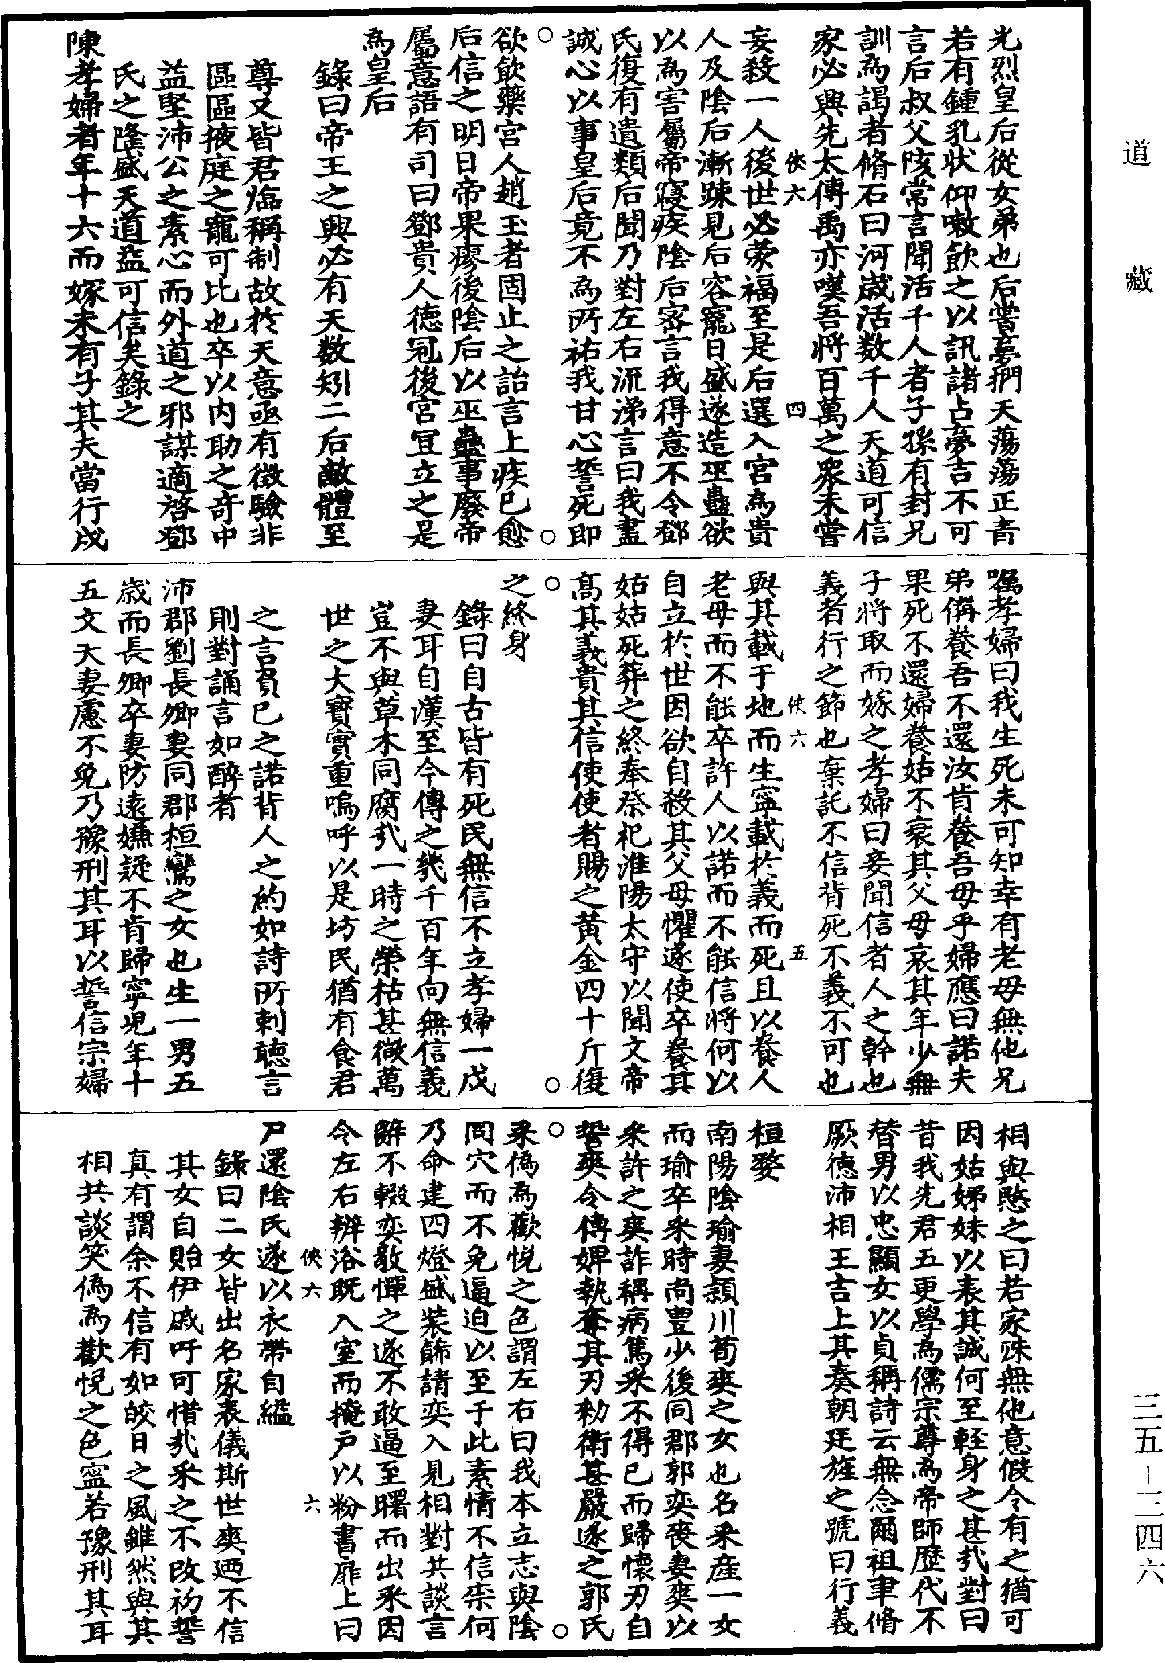 道藏
光烈皇后從女弟也后嘗夢捫天蕩蕩正青
若有鍾乳狀仰嗽飲之以訊諸占夢吉不可
言后叔父陔常言聞活千人者子孫有封兄
訓為謁者脩石臼河歲活数千人天道可信
家必興先太傅禹亦嘆吾將百萬之衆未嘗
俠六 四
妄殺一人後世必蒙福至是后選入宮為貴
人及陰后漸踈見后容寵日盛遂造巫蠱欲
以為害屬帝寝疾陰后密言我得意不令鄧
氏復有遺類后聞乃對左右流涕言曰我盡
誠心以事皇后竟不為所祐我甘心誓死即
欲飲藥宮人趙玉者固止之詒言上疾已愈
后信之明日帝果瘳後陰后以巫蠱事廢帝
屬意語有司曰鄧貴人德冠後宮冝立之是
為皇后
錄曰帝王之興必有天数矧二后敵體至
尊又皆君臨稱制故於天意亟有徵驗非
區區掖庭之寵可比也卒以内助之奇中
益堅沛公之素心而外道之邪謀適啓鄧
氏之隆盛天道益可信矣錄之
陳孝婦者年十六而嫁未有子其夫當行戍
囑孝婦曰我生死未可知幸有老母無他兄
弟備養吾不還汝肯養吾母乎婦應曰諾夫
果死不還婦養姑不衰其父母哀其年少無
子將取而嫁之孝婦曰妾聞信者人之幹也
義者行之節也棄託不信背死不義不可也
俠六 五
與其載于地而生寧載於義而死且以養人
老母而不能卒許人以諾而不能信將何以
自立於世因欲自殺其父母懼遂使卒養其
姑姑死葬之終奉祭祀淮陽太守以聞文帝
髙其義貴其信使使者賜之黃金四十斤復
之終身
錄曰自古皆有死民無信不立孝婦一戍
妻耳自漢至今傳之幾千百年向無信義
豈不與草木同腐㢤一時之榮枯甚微萬
世之大寳實重嗚呼以是坊民猶有食君
之言負已之諾背人之約如詩所刺聽言
則對誦言如醉者
沛郡劉長卿妻同郡桓鸞之女也生一男五
歲而長卿卒妻防遠嫌疑不肯歸寧兒年十
五文夭妻慮不免乃豫刑其耳以誓信宗婦
相與愍之曰若家殊無他意假令有之猶可
因姑姊妹以表其誠何至輕身之甚㢤對曰
昔我先君五更學為儒宗尊為帝師歷代不
替男以忠顯女以貞稱詩云無念爾祖聿脩
厥德沛相王吉上其奏朝廷旌之號曰行義
桓嫠
南陽陰瑜妻潁川荀爽之女也名采産一女
而瑜卒采時尚豐少後同郡郭奕喪妻爽以
采許之爽詐稱病篤采不得已而歸懷刃自
誓爽令傅婢執奪其刃勑衛甚嚴遂之郭氏
采偽為歡悅之色謂左右曰我本立志與陰
同穴而不免逼迫以至于此素情不信柰何
乃命建四燈盛装餙請奕入見相對共談言
辭不輟奕敬憚之遂不敢逼至曙而出采因
令左右辨浴既入室而掩戸以粉書扉上曰
俠六 六
尸還陰氏遂以衣帶自縊
錄曰二女皆出名家表儀斯世爽廼不信
其女自貽伊戚吁可惜㢤采之不改初誓
真有謂余不信有如皎日之風雖然與其
相共談笑偽為歡悅之色寧若豫刑其耳
三五-二四六